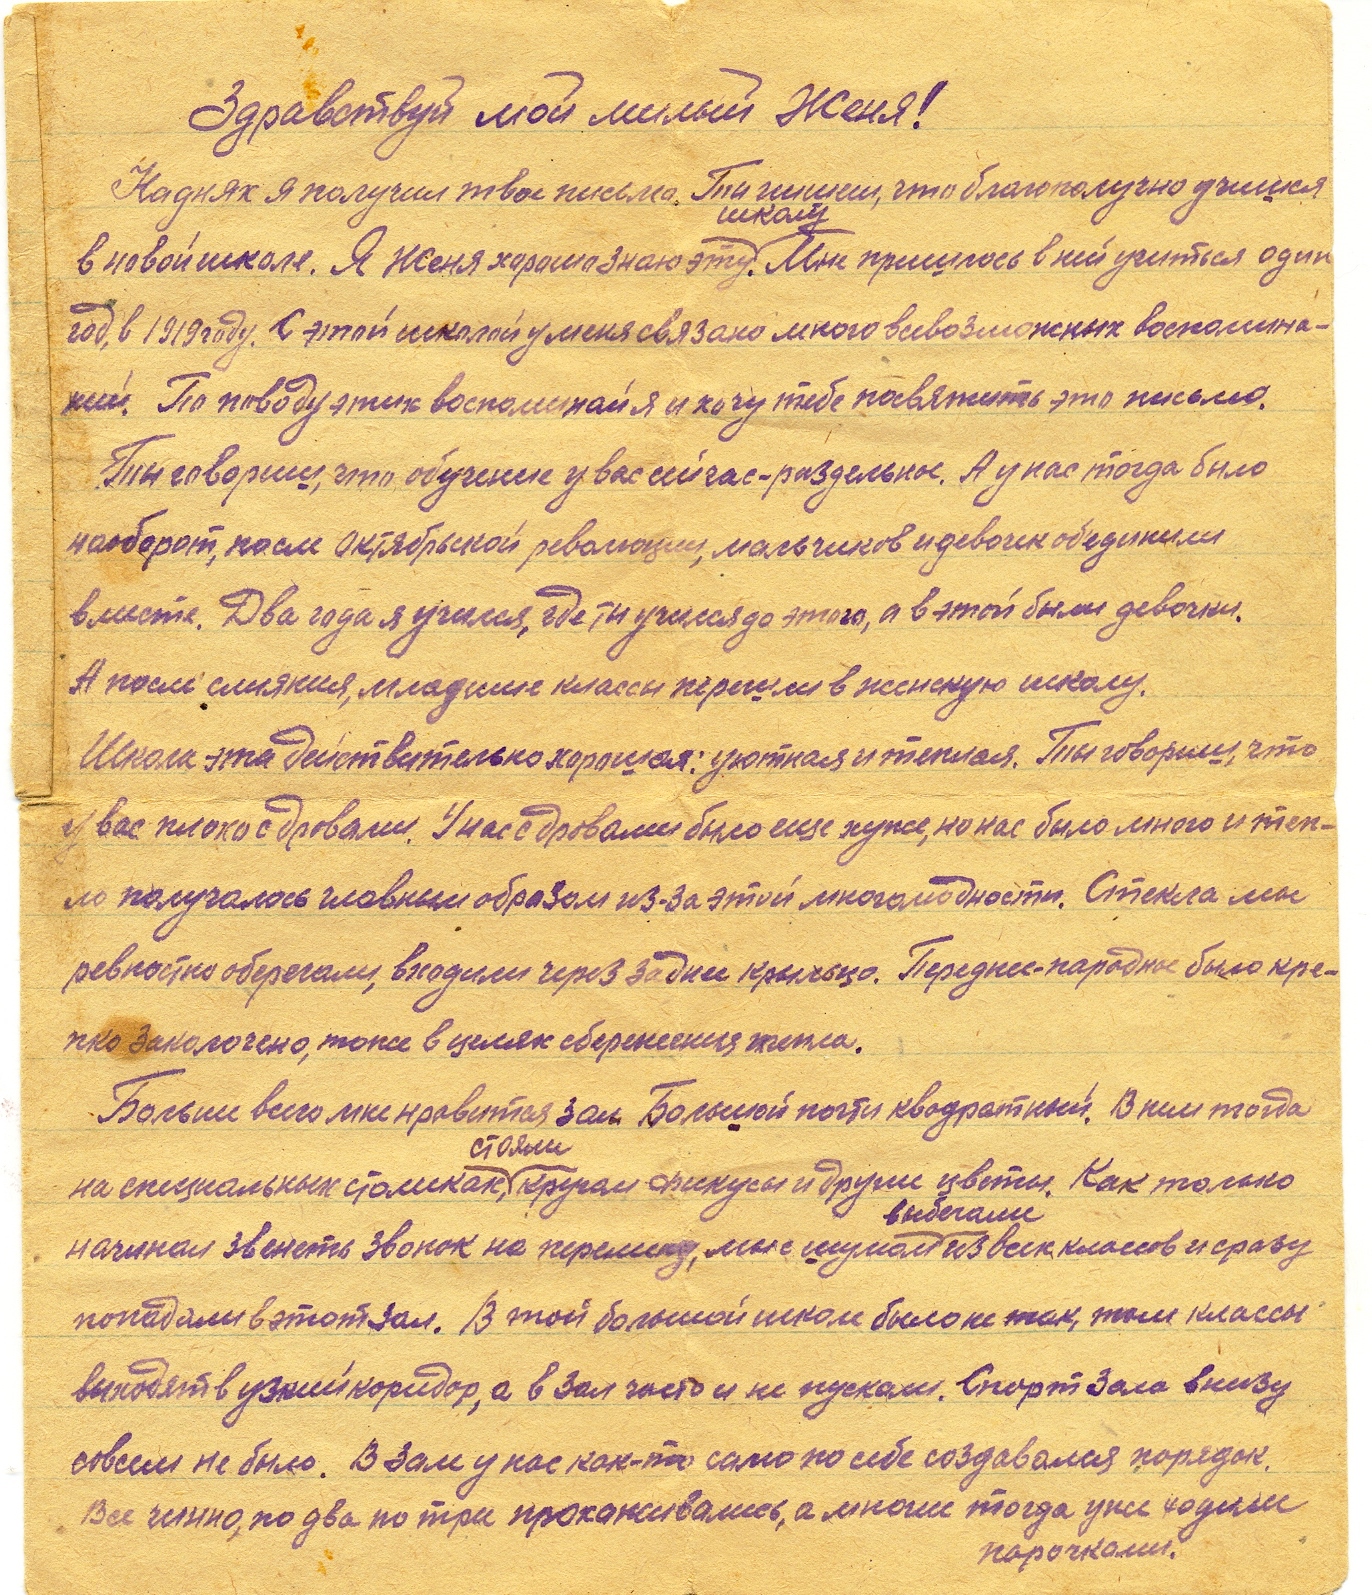 Здравствуй мой милый Женя!
На днях я получил твое письмо. Ты пишеш, что благополучно учишся
школу
в новой школе. Я Женя хорошо знаю эту. Мне пришлось в ней учиться один
год, в 1919 году. С этой школой у меня связано много всевозможных воспомина-
ний. По поводу этих воспоминай я и хочу тебе посвятить это письмо.
Ты говориш, что обучение у вас сийчас-раздельное. А у нас тогда было
наоборот, после Октябрьской революции, мальчиков и девочек обединили
вместе. Два года я учился, где ты учился до этого, а в этой были девочки.
А после слияния, младшие классы перешли в женскую школу.
Школа эта действительно хорошая: уютная и теплая. Ты говориш, что
у вас плохо с дровами. У нас с дровами было еще хуже, но нас было много и теп-
ло получалось главным образом из-за этой многолюдности. Стекла мы
ревностно оберегали, входили через заднее крыльцо. Переднее-парадное было кре-
пко заколочено, тоже в целях сбережения тепла.
Больше всего мне нравится зал. Большой почти квадратный. В нем тогда
стояли
на специальных столиках, кругом фикусы и другие цветы. Как только
выбегали
начинал звенеть звонок на перемену, мы с шумом из всех классов и сразу
попадали в этот зал. В той большой школе было не так, там классы
выходят в узкий коридор, а в зал часто и не пускали. Спорт зала внизу
совсем не было. В зале у нас как-то само по себе создавался порядок.
Все чинно, по два по три прохаживались, а многие тогда уже ходили
парочками.